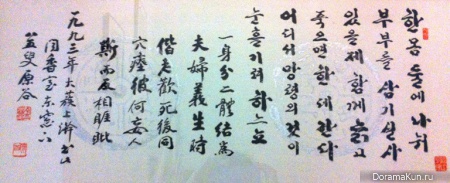 한 몸 둘에 나눠
부부를 삼기실사
있을제 함께 늙고
죽으면 한데 간다
어디서 망령의 것이
눈흘기려 하느뇨
一身分二體結爲
夫婦義生時
偕老歡死後同
穴瘞彼何妄人
斯而反相睚眦
一九九三年大 上澣
香室東窓下
原谷
DoramaKun.ru